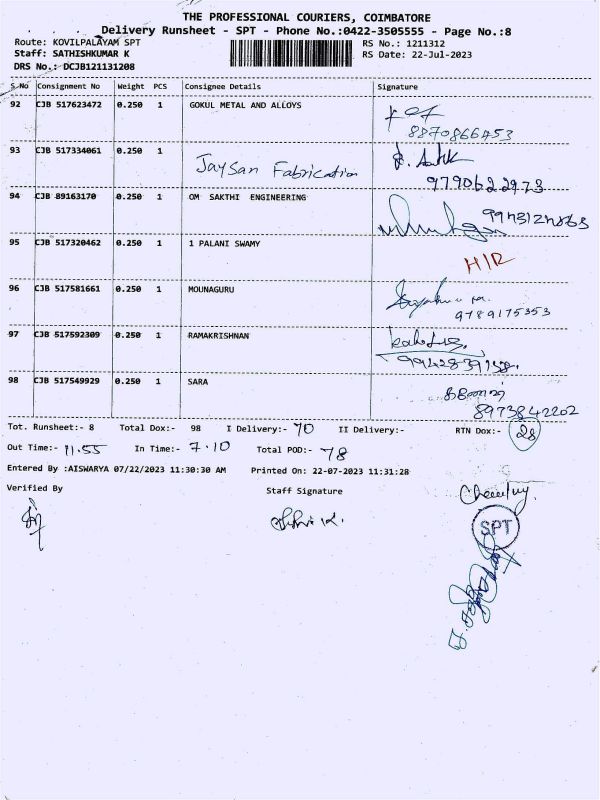 THE PROFESSIONAL COURIERS, COIMBATORE
Delivery Runsheet - SPT - Phone No.:0422-3505555 - Page No.:8
Route: KOVILPALAYAM SPT
RS No.: 1211312
Staff: SATHISHKUMAR K
RS Date: 22-Jul-2023
DRS No.: DCJB121131208
S.No Consignment No Weight PCS Consignee Details Signature
92 CJB 517623472 0.250 1 GOKUL METAL AND ALLOYS
8870866453
93 CJB 517334061 0.250 1 Jaysan Fabrication
9790622973
94 CJB 89163170 0.250 1 OM SAKTHI ENGINEERING
95 CJB 517320462 0.250 1 1 PALANI SWAMY
H/R
96 CJB 517581661 0.250 1 MOUNAGURU
9789175353
97 CJB 517592309 0.250 1 RAMAKRISHNAN
98 CJB 517549929 0.250 1 SARA
8973842202
Tot. Runsheet:- 8 Total Dox:- 98 I Delivery:- 70 II Delivery:- RTN Dox:- 28
Out Time:- 11.55 In Time:- 7.10 Total POD:- 78
Entered By :AISWARYA 07/22/2023 11:30:30 AM Printed On: 22-07-2023 11:31:28
Verified By Staff Signature
SPT